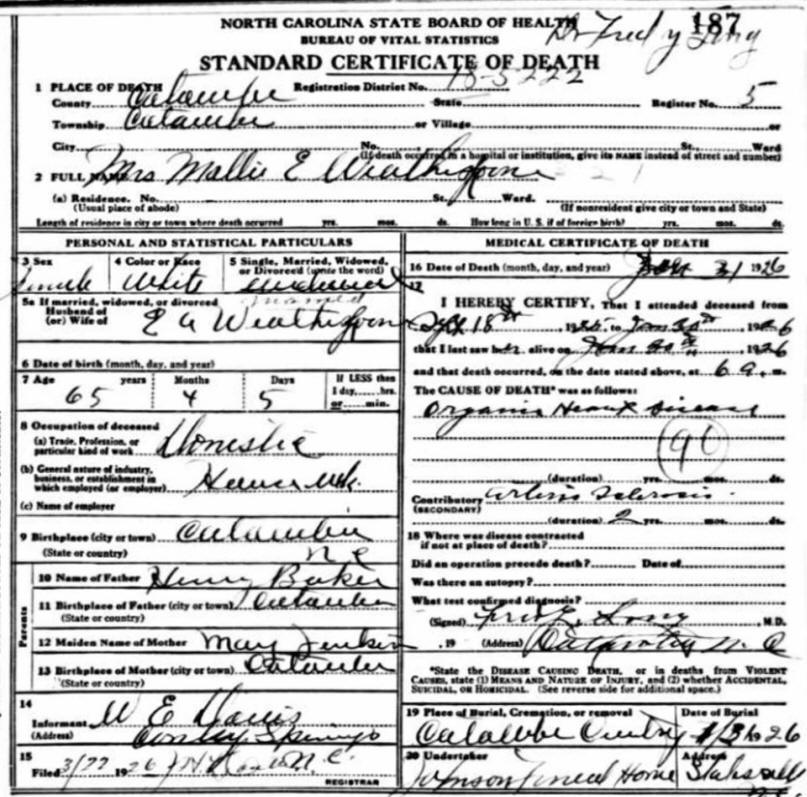 187
NORTH CAROLINA STATE BOARD OF HEALTH
BUREAU OF VITAL STATISTICS
Dr Fred y Long
STANDARD CERTIFICATE OF DEATH
1 PLACE OF DEATH Registration District No. 18-5222
County Catawba State Register No. 5
Township Catawba or Village or
City No. St. Ward
(If death occurred in a hospital or institution, give its NAME instead of street and number)
2 FULL NAME Mrs Mallie E
(a) Residence. No. St. Ward.
(Usual place of abode) (If nonresident give city or town and State)
Length of residence in city or town where death occurred yrs. mos. ds. How long in U. S. if of foreign birth? yrs. mos. ds.
PERSONAL AND STATISTICAL PARTICULARS
3 Sex 4 Color or Race 5 Single, Married, Widowed, or Divorced (write the word)
Female White married
5a If married, widowed, or divorced
Husband of
(or) Wife of E A
6 Date of birth (month, day, and year)
7 Age years Months Days If LESS then
65 4 5 1 day, hrs.
or min.
8 Occupation of deceased
(a) Trade, Profession, or
particular kind of work Domestic
(b) General nature of industry,
business, or establishment in
which employed (or employer) House wk.
(c) Name of employer
9 Birthplace (city or town) Catawba
(State or country) N C
Parents
10 Name of Father Henry Baker
11 Birthplace of Father (city or town) Catawba
(State or country)
12 Maiden Name of Mother Mary
13 Birthplace of Mother (city or town) Catawba
(State or country)
14
Informant W E
(Address) Springs
15 N.C.
Filed 3/22 1926
REGISTRAR
MEDICAL CERTIFICATE OF DEATH
16 Date of Death (month, day, and year) 31 1926
17
I HEREBY CERTIFY, That I attended deceased from
Sept 18th 1925, to Jan 30th, 1926
that I last saw her alive on Jan 30th, 1926
and that death occurred, on the date stated above, at 6 a. m.
The CAUSE OF DEATH* was as follows:
Organic Heart Disease
(90)
(duration) yrs. mos. ds.
Contributory Arterio Sclerosis
(SECONDARY)
(duration) 2 yrs. mos. ds.
18 Where was disease contracted
if not at place of death?
Did an operation precede death? Date of
Was there an autopsy?
What test confirmed diagnosis?
(Signed) Fred Y. Long M.D.
, 19 (Address) N. C
*State the DISEASE CAUSING DEATH, or in deaths from VIOLENT
CAUSES, state (1) MEANS AND NATURE OF INJURY, and (2) whether ACCIDENTAL,
SUICIDAL, OR HOMICIDAL. (See reverse side for additional space.)
19 Place of Burial, Cremation, or removal Date of Burial
Catawba
20 Undertaker Address
Johnson Funeral Home
N.C.